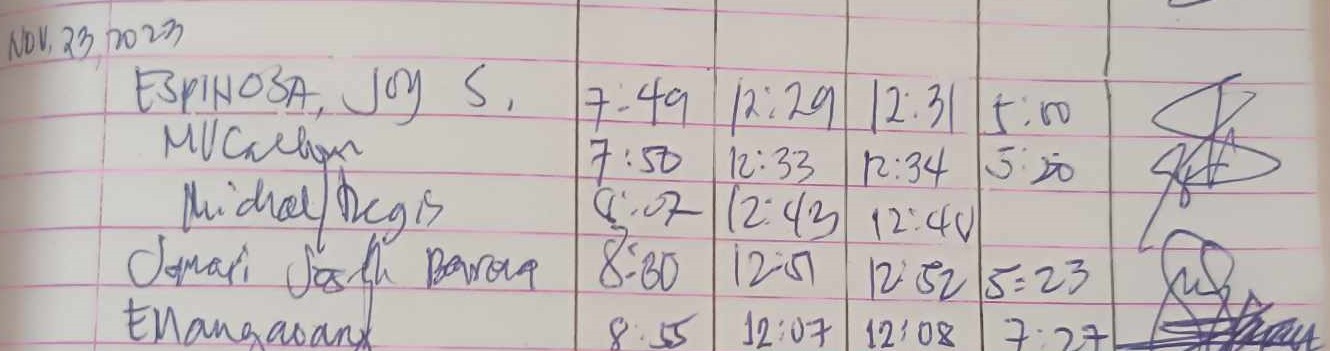 NOV. 23, 2023
ESPINOSA, Joy S. 7:49 12:29 12:31 5:00
7:50 12:33 12:34 5:20
Michael Regis 8:07 12:43 12:44
Jomari Joseph 8:30 12:51 12:52 5:23
8:55 12:07 12:08 7:27